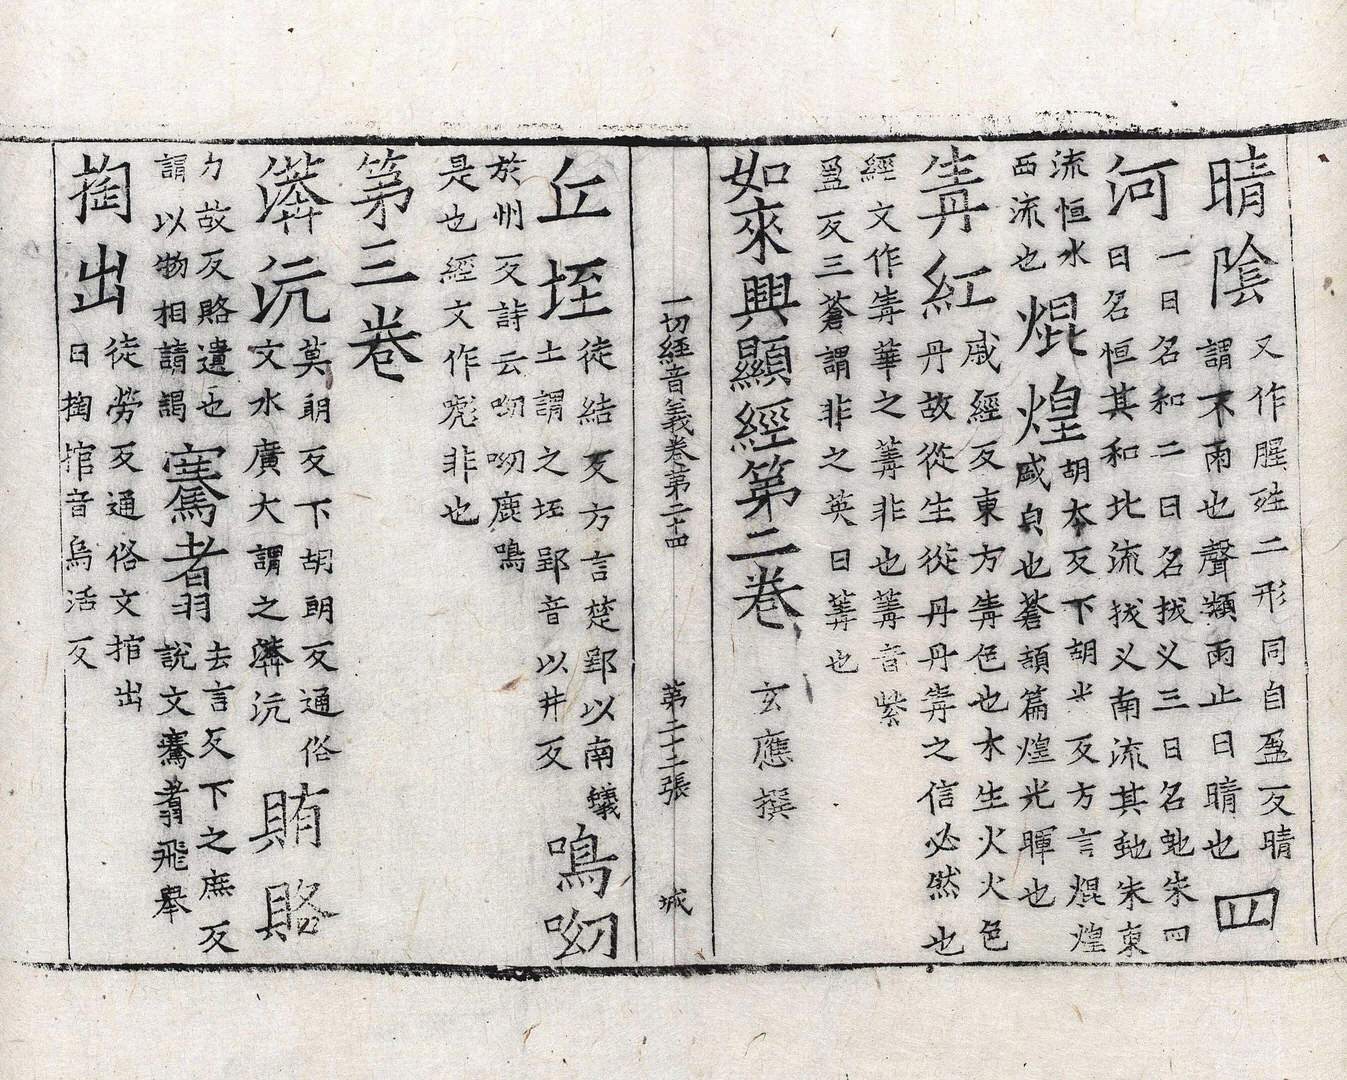 晴陰又作腥夝二形同自盈反晴
謂不雨也聲類雨止曰晴也四
河一曰名和二曰名拔义三曰名虵朱四
曰名恒其和北流拔义南流其虵朱東
流恒水
西流也煜煌胡本反下胡光反方言焜煌
咸皃也蒼頡篇煌光暉也
青紅戚經反東方青色也木生火火色
丹故從生從丹丹青之信必然也
經文作䔔華之䔔非也䔔音紫
盈反三蒼謂非之英曰䔔也
如來興顯經第二卷 玄應撰
一切經音義卷第二十四 第二十二張 城
丘垤徒結反方言楚郢以南蟻
土謂之垤郢音以井反鳴呦
於州反詩云呦呦鹿鳴
是也經文作㲒非也
第三卷
漭沆莫朗反下胡朗反通俗
文水廣大謂之漭沆賄賂
力故反賂遺也
謂以物相請謁騫翥去言反下之庶反
說文騫翥飛舉
掏出徒勞反通俗文捾出
曰掏捾音烏活反